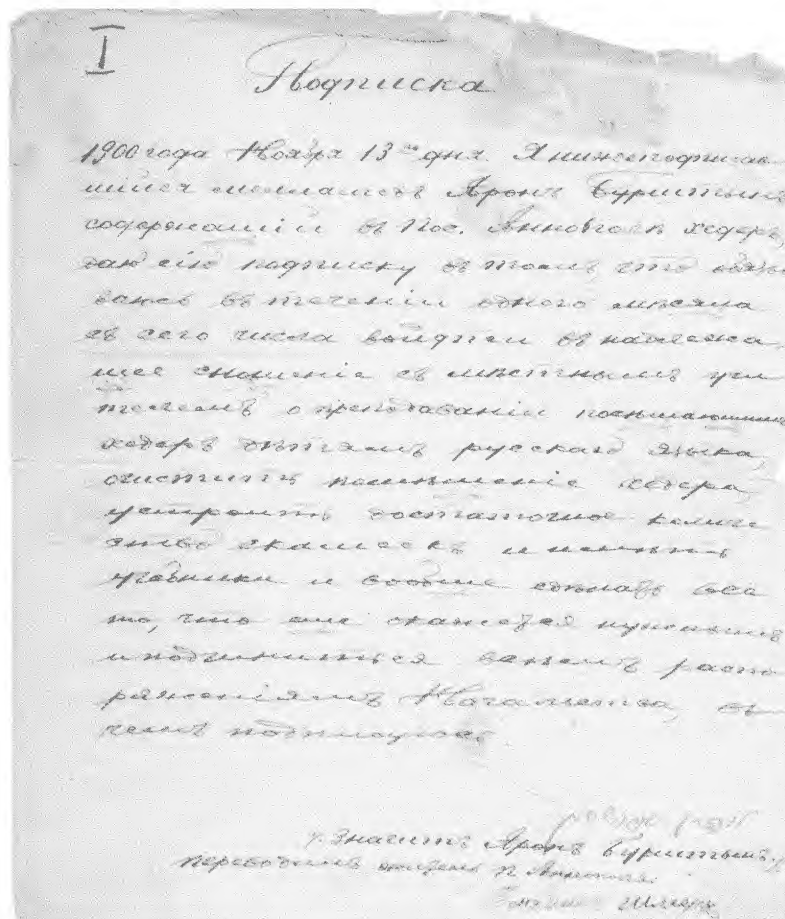 I
Подписка
1900 года Ноября 13го дня. Я нижеподписав
шійся меламедъ Аронъ Бурштынъ
содержащій въ Пос. Аннополь хедеръ,
даю сію подписку въ томъ, что обязы
ваюсь въ теченіи одного мѣсяца
съ сего числа войдти въ надлежа
щее сношеніе съ мѣстнымъ учи
телемъ о преподаваніи посѣщающимъ
хедеръ дѣтямъ русскаго языка,
очистить помѣщеніе хедера,
устроить достаточное количе
ство скамеекъ и имѣть
учебники и вообще сдѣлать все
то, что еще окажется нужнымъ
и подчиниться всѣмъ распо
ряженіямъ Начальства, въ
чемъ подписуюсь
Значитъ Аронъ Бурштынъ
Переводилъ житель п. Аннополя
Шмуль